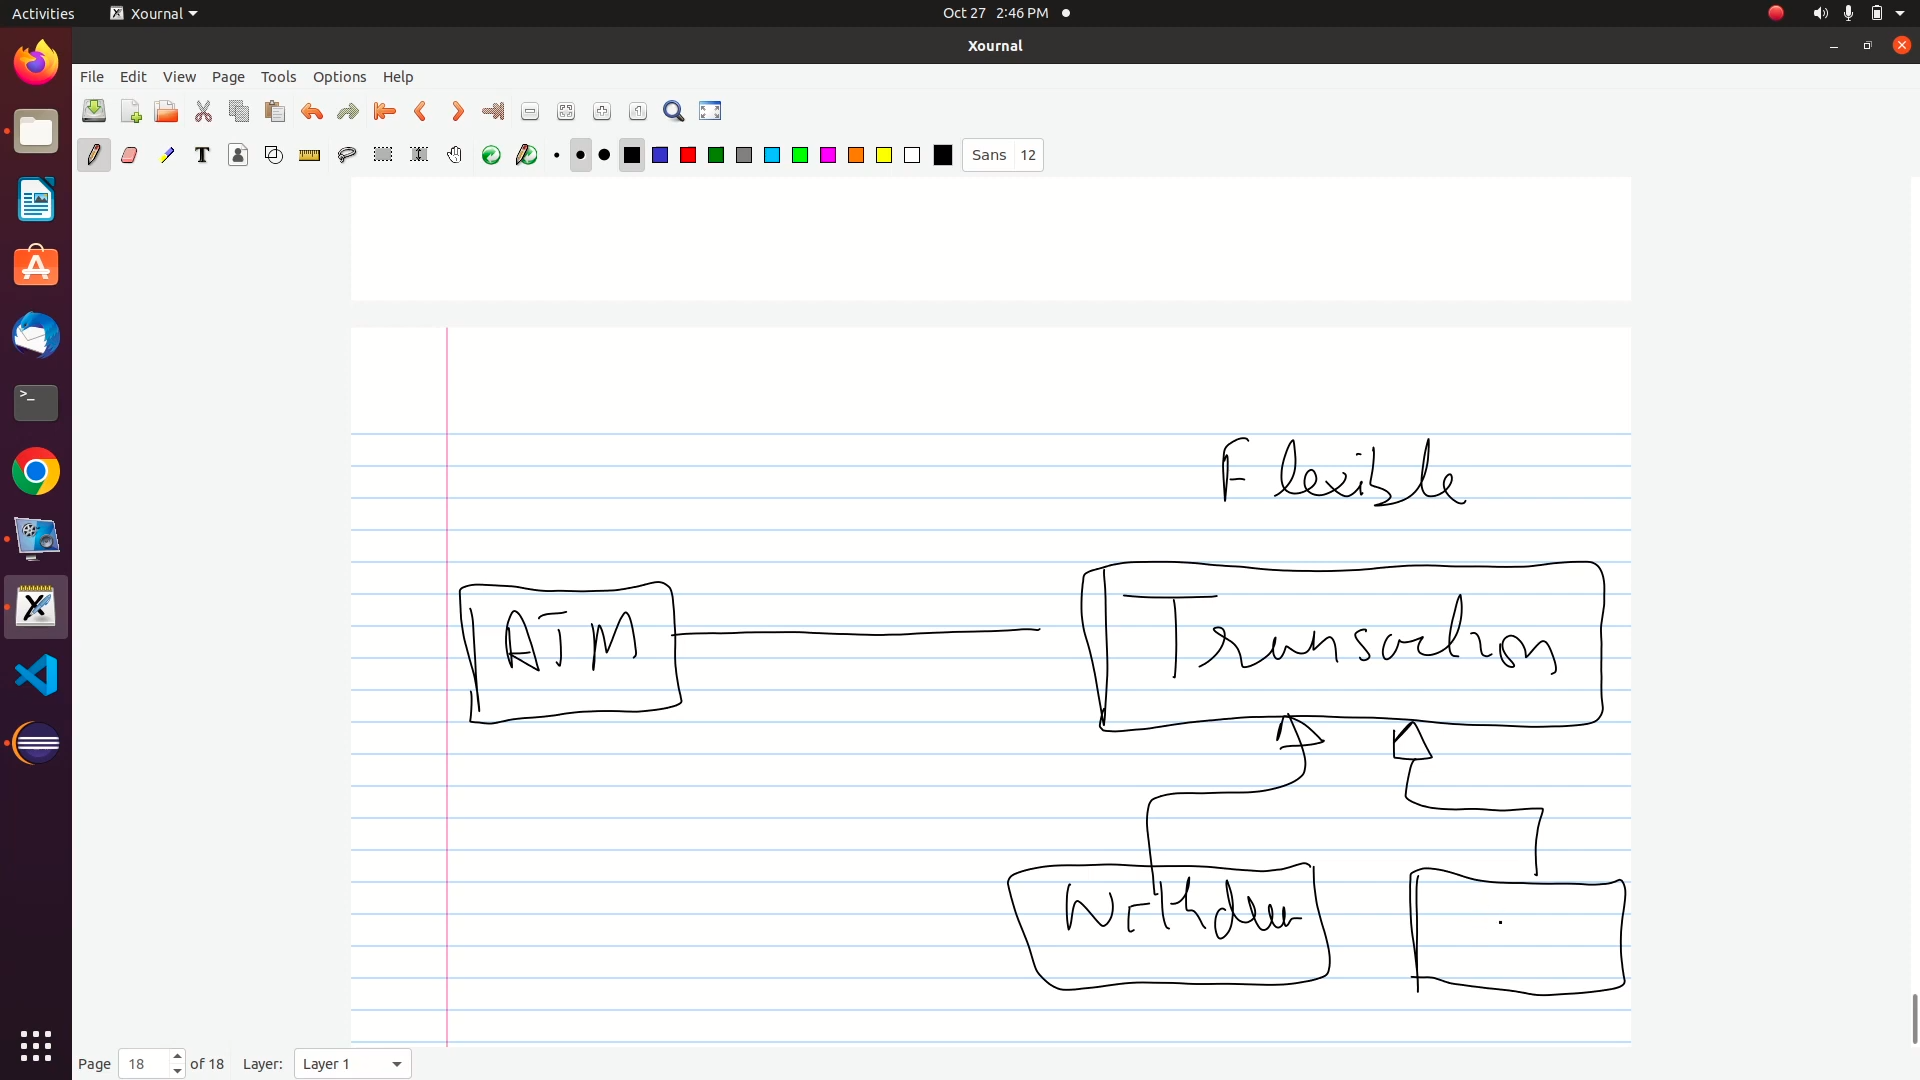 Activities Xournal Oct 27 2:46 PM
Xournal
File Edit View Page Tools Options Help
Sans 12
Flexible
ATM Transaction
Withdraw
Page 18 of 18 Layer: Layer 1